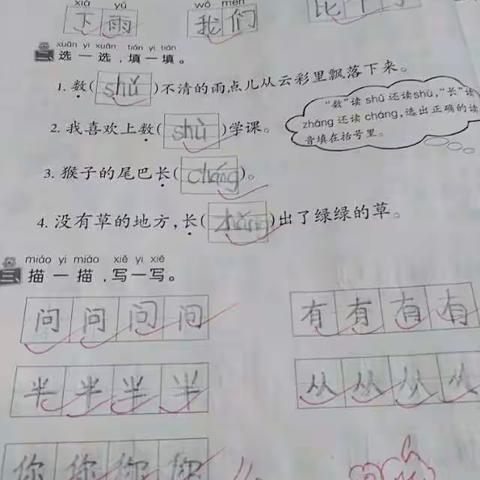 xià yǔ wǒ men
下雨 我们
xuǎn yi xuǎn tián yi tián
二 选一选,填一填。
1. 数(shǔ)不清的雨点儿从云彩里飘落下来。
“数”读 shǔ 还读shù,“长”读
zhǎng 还读 cháng,选出正确的读
音填在括号里。
2. 我喜欢上数(shù)学课。
3. 猴子的尾巴长(cháng)。
4. 没有草的地方,长(zhǎng)出了绿绿的草。
miáo yi miáo xiě yi xiě
三 描一描,写一写。
问问问问 有有有有
半半半半 丛丛丛丛
你你你你